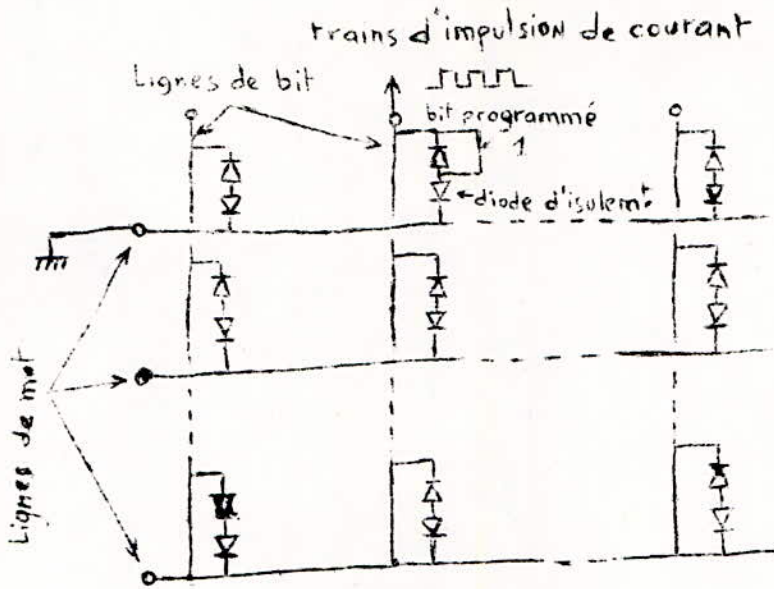 trains d'impulsion de courant
Lignes de bit
bit programmé
1
diode d'isolemt.
Lignes de mot